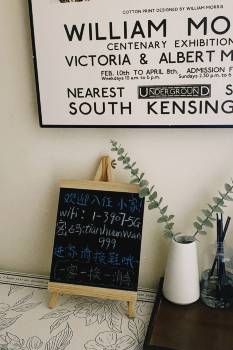 COTTON PRINT DESIGNED BY WILLIAM MORRIS
WILLIAM MO
CENTENARY EXHIBITION
VICTORIA & ALBERT M
FEB. 10TH TO APRIL 8TH.
ADMISSION FR
Weekdays 10 a.m. to 6 p.m.
Sundays 2.30 p.m. to 6
NEAREST UNDERGROUND S
SOUTH KENSING
欢迎入住小家
wifi: 1-3907-5G
密码:
999
进家请换鞋哦~
一客一换一消